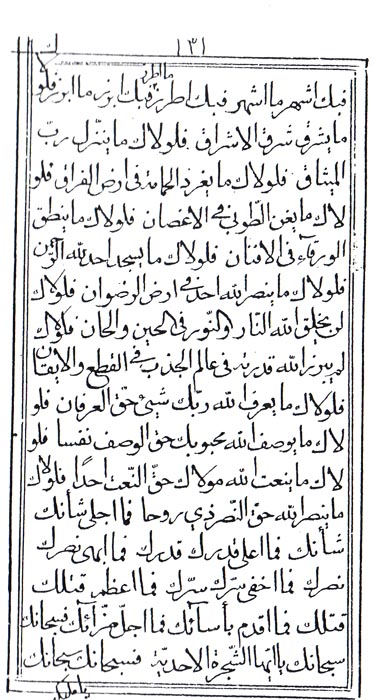 ١٣١
فبك اشهر ما اشهر فبك اطرز ما اطرز فبك ابرز ما ابرز فلو
ما يشرق شرق الاشراق فلولاك ما ينزل ربّ
الميثاق فلولاك ما يغرد الحمامة فى ارض الفراق فلو
لاك ما يغن الطوبى فى الاغصان فلولاك ما ينطق
الورقاء فى الافنان فلولاك ما يسجد احد لله الرّحمن
فلولاك ما ينصر الله احد فى ارض الرضوان فلولاك
لن يخلق الله النار و النور فى الحين و الحان فلولاك
لم يبرز الله قدرته فى عالم الجذب فى القطع و الايقان
فلولاك ما يعرف الله ربّك شيئ حقّ العرفان فلو
لاك ما يوصف الله محبوبك حق الوصف نفسا فلو
لاك ما ينعت الله مولاك حقّ النّعت احدا فلولاك
ما ينصر الله حق النّصر ذي روحا فما اجلى شأنك
شأنك فما اعلى قدرك قدرك فما ابهى نصرك
نصرك فما اخفى سرّك سرّك فما اعظم قتلك
قتلك فما اقدم بأسائك فما اجلّ ضرّائك فسبحانك
سبحانك يا ايتها الشجرة الاحدية فسبحانك سبحانك
يا مليك